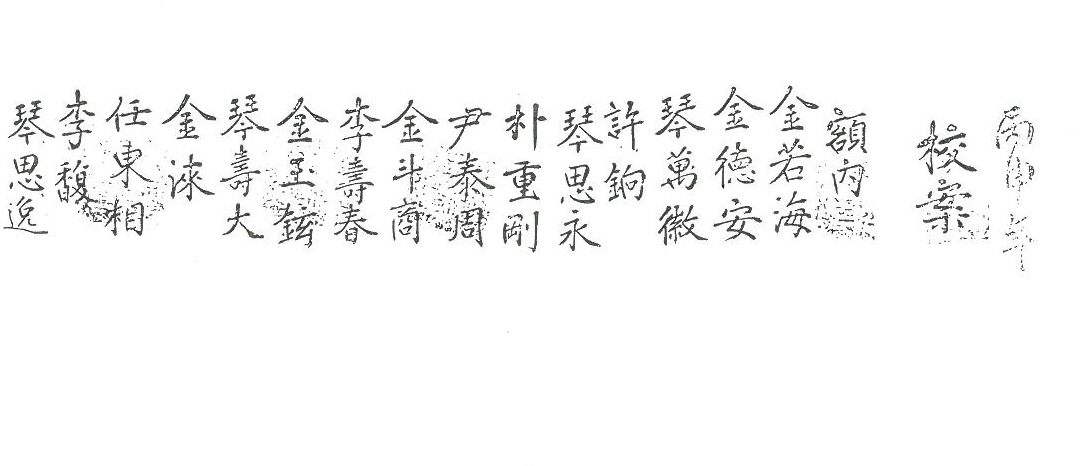 校案
額內
金若海
金德安
琴萬徽
許銁
琴思永
朴重剛
尹泰周
金斗商
李壽春
金玉鉉
琴壽大
金涑
任東相
李馥
琴思逸